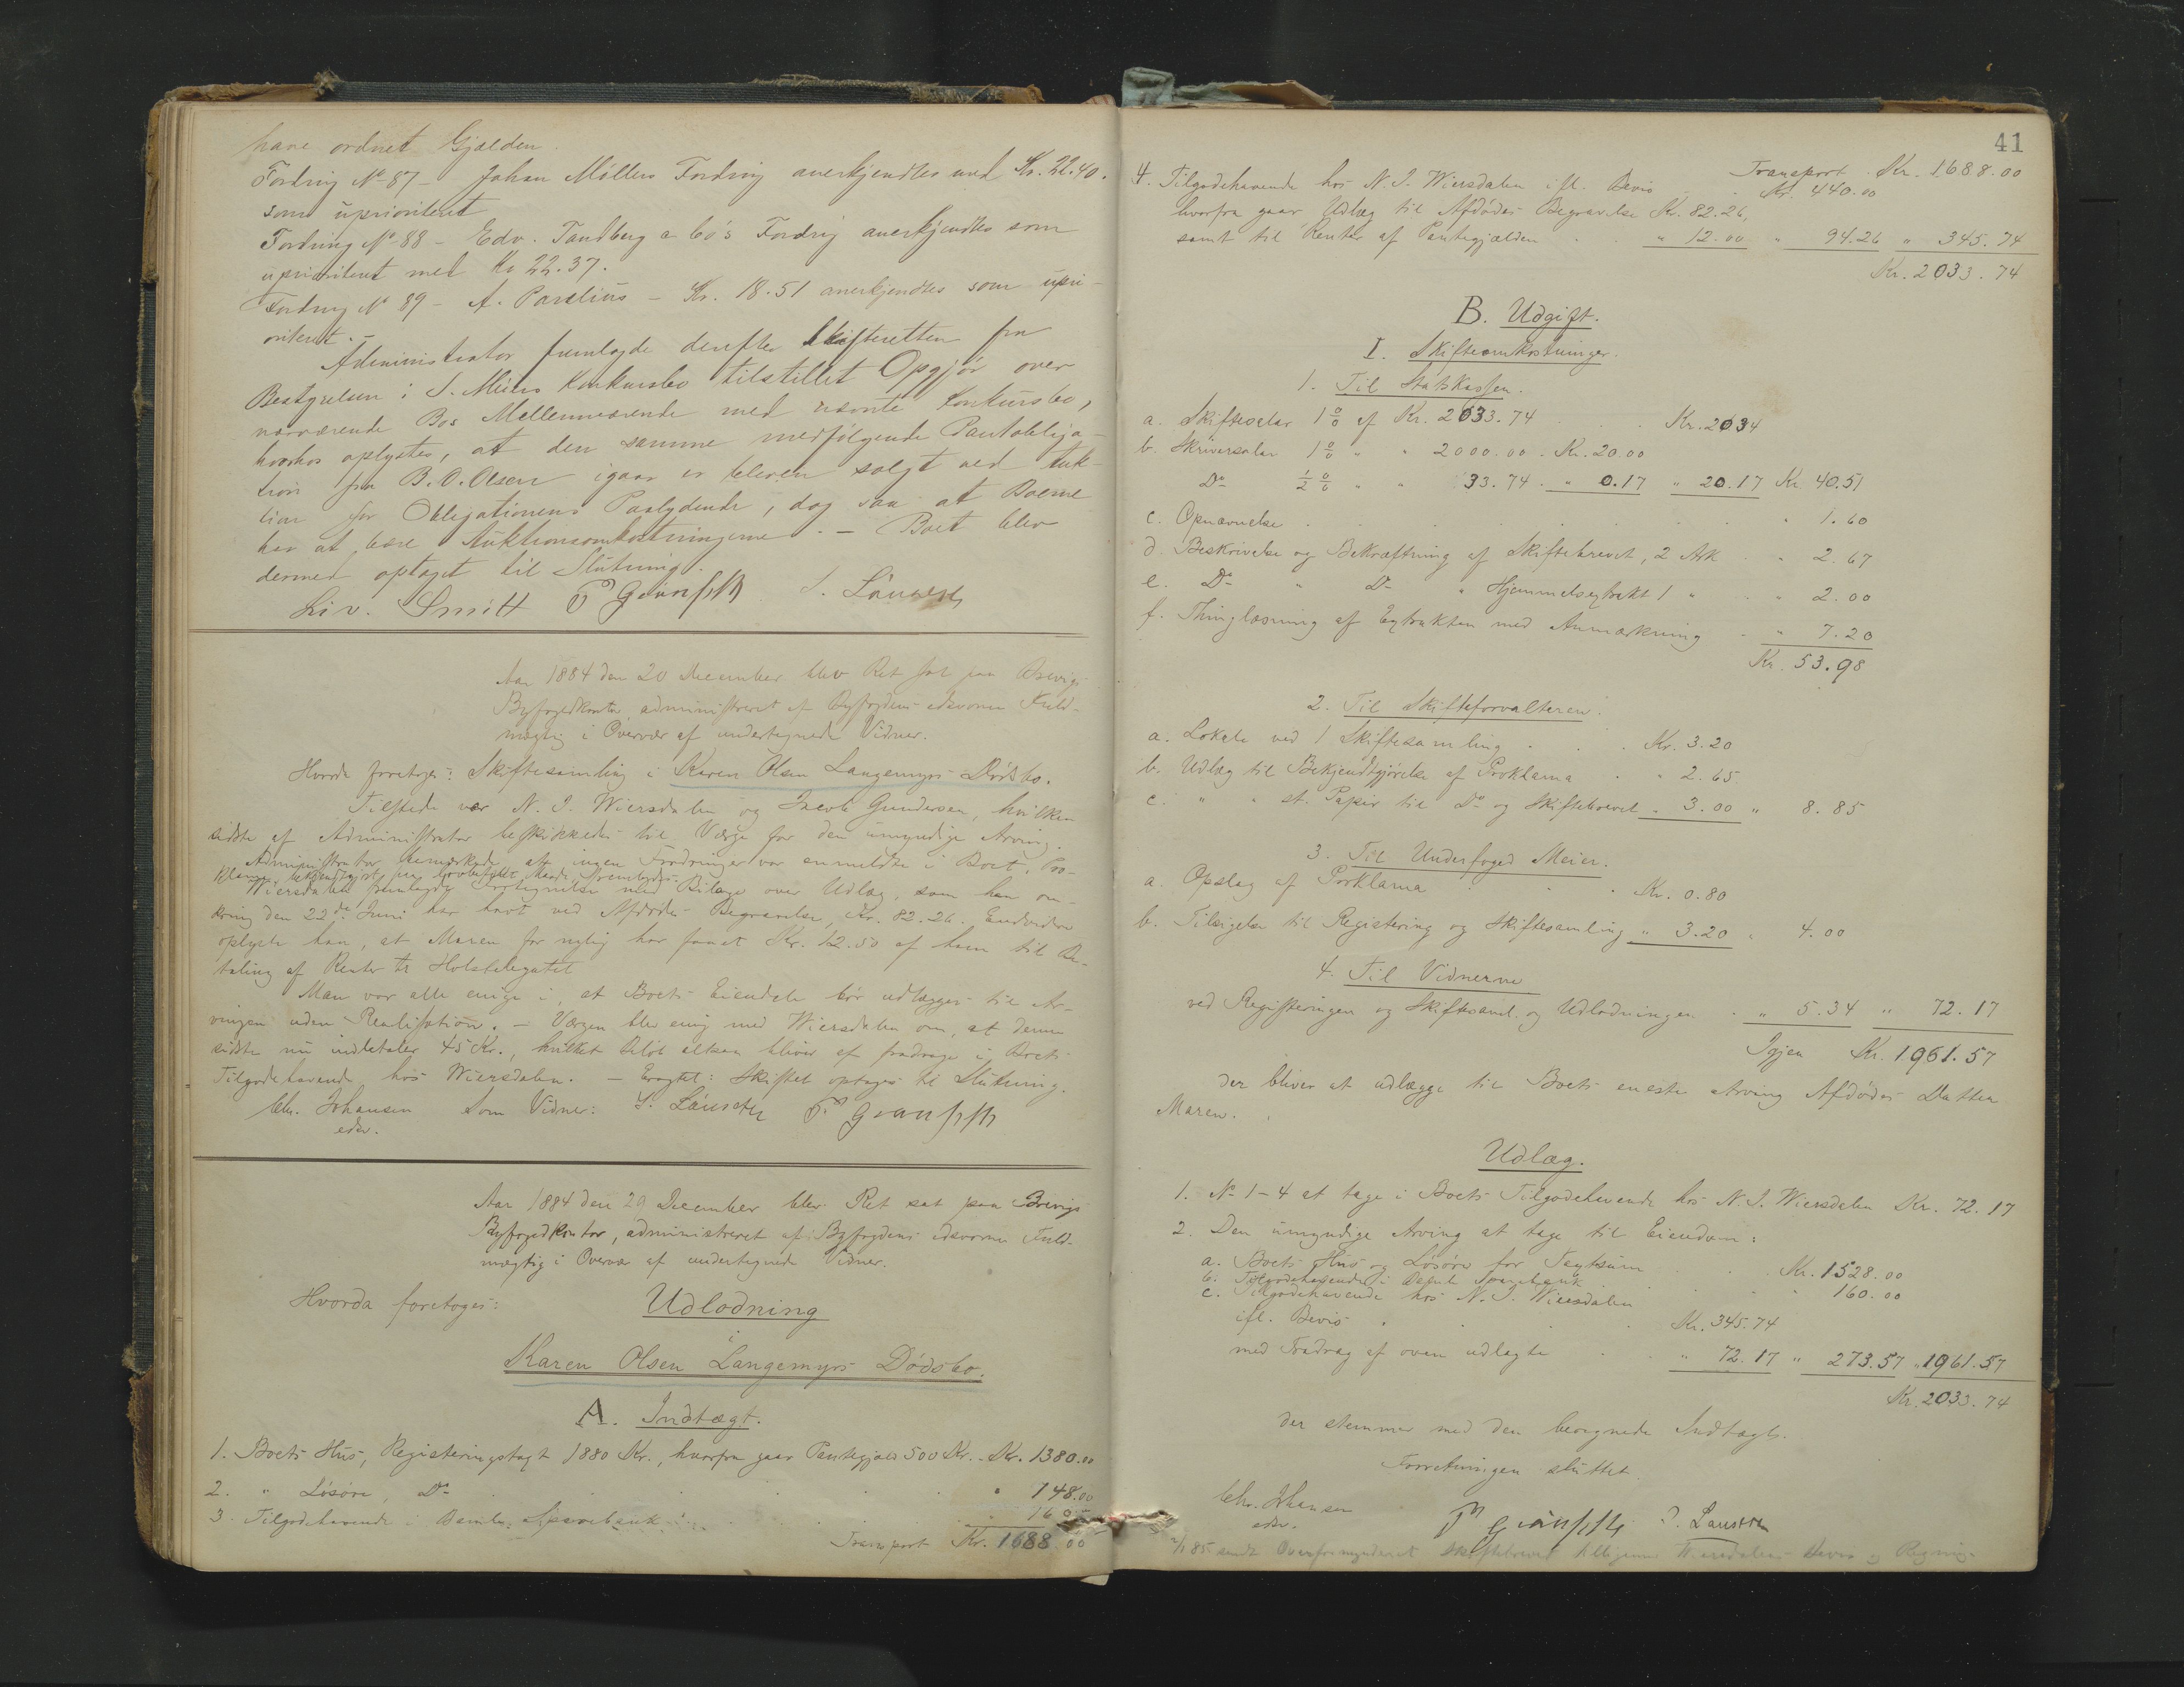 have ordnet Gjælden.
Fordring No 87 - Johan Möllers Fordring anerkjendtes med Kr. 22.40.
som uprioriteret
Fordring No 88 - Edv. Tandberg a Co's Fordrig anerkjendtes som
uprioriteret med Kr 22.37.
Fordring No 89 - A. Paulius - Kr. 18.51 anerkjendtes som upri-
oriteret. -
Administrator fremlagde derefter Skifteretten fra
Bestyrelsen i Konkursbo tilstillet Opgjör over
nærværende Bos Mellemværende med nævnte Konkursbo,
hvorhos oplystes, at den samme medfölgende Pantobliga-
tion fra B. O. Olsen igaar er bleven solgt ved Auk-
tion for Obligationens Paalydende, dog saa at Boerne
har at bære Auktionsomkostningerne. - Boet blev
dermed optaget til Slutning.
Smitt
Aar 1884 den 20 December blev Ret sat paa Brevigs
Byfogedkontor administreret af Byfogdens edsvorne Fuld-
mægtig i Overvær af undertegnede Vidner.
Hvorda foretoges: Skiftesamling i Karen Olsen Langemyrs Dödsbo.
Tilstede var N. J. Wiersdalen og Jacob Gundersen, hvilken
sidste af Administrator beskikkedes til Værge for den umyndige Arving.
Administrator bemærkede, at ingen Fordringer var anmeldte i Boet. Pro-
klama, bekjendtgjort paa lovbefalet Maade, fremlagdes.
Wiersdalen fremlagde Fortegnelse med Bilage over Udlæg, som han om-
kring den 22de Juni har havt ved Afdödes Begravelse, Kr. 82.26. Endvidere
oplyste han, at Maren for nylig har faaet Kr. 12.50 af ham til Be-
taling af Renter til Holstelegatet
Man var alle enige i, at Boets Eiendele bör udlægges til Ar-
vingen uden Realisation. - Værgen blev enig med Wiersdalen om, at denne
sidste nu indbetaler 45 Kr., hvilket Belöb altsaa bliver af fradrage i Boets
Tilgodehavende hos Wiersdalen. - Eragtet: Skiftet optages til Slutning.
Chr. Johansen Som Vidner:
edsv.
Aar 1884 den 29 December blev Ret sat paa Brevigs
Byfogedkontor, administreret af Byfogdens edsvorne Fuld-
mægtig i Overvær af undertegnede Vidner.
Hvorda foretoges: Udlodning
i
Karen Olsen Langemyrs Dödsbo.
A. Indtægt.
1. Boets Hus, Registeringstagt 1880 Kr., hvorfra gaar Pantegjæld 500 Kr. . Kr. 1380.00
2. " Lösöre, Do " 148.00
3. Tilgodehavende i Bamle Sparebank " 160.00
Transport Kr. 1688.00
41
Transport . Kr. 1688.00
4. Tilgodehavende hos N. J. Wiersdalen ifl. Bevis Kr. 440.00
hvorfra gaar Udlæg til Afdödes Begravelse Kr. 82.26,
samt til Renter af Pantegjælden " 12.00 " 94.26 " 345.74
Kr. 2033.74
B. Udgift.
I. Skifteomkostninger.
1. Til Statskassen.
a. Skiftesalar 1 % af Kr. 2033.74 Kr. 20.34
b. Skriversalar 1 % " " 2000.00 . Kr. 20.00
Do ½ % " " 33.74 . " 0.17 " 20.17 Kr. 40.51
c. Opnævnelse " 1.60
d. Beskrivelse og Bekræftning af Skiftebrevet, 2 Ark " 2.67
e. Do " Do " Hjemmelsextrakt 1 " " 2.00
f. Thinglæsning af Extrakten med Anmærkning " 7.20
Kr. 53.98
2. Til Skifteforvalteren.
a. Lokale ved 1 Skiftesamling . Kr. 3.20
b. Udlæg til Bekjendtgjörelse af Proklama " 2.65
c. " " st. Papir til Do og Skiftebrevet " 3.00 " 8.85
3. Til Underfoged Meier.
a. Opslag af Porklama Kr. 0.80
b. Tilsigelse til Registering og Skiftesamling " 3.20 " 4.00
4. Til Vidnerne
ved Registeringen og Skiftesaml. og Udlodningen " 5.34 " 72.17
Igjen Kr. 1961.57
der bliver at udlægge til Boets eneste Arving Afdödes Datter
Maren.
Udlæg.
1. No 1-4 at tage i Boets Tilgodehavende hos N. J. Wiersdalen Kr. 72.17
2. Den umyndige Arving at tage til Eiendom:
a. Boets Hus og Lösöre for Taxtsum Kr. 1528.00
b. Tilgodehavende i Bamle Sparebank " 160.00
c. Tilgodehavende hos N. J. Wiersdalen
ifl. Bevis Kr. 345.74
med Fradrag af oven udlagte " 72.17 " 273.57 " 1961.57
Kr. 2033.74
der stemmer med den beregnede Indtægt.
Forretningen sluttet.
Chr. Johansen
edsv.
85 sendt Overformynderiet Skiftebrevet tilligemed Wiersdalens Bevis og Regning